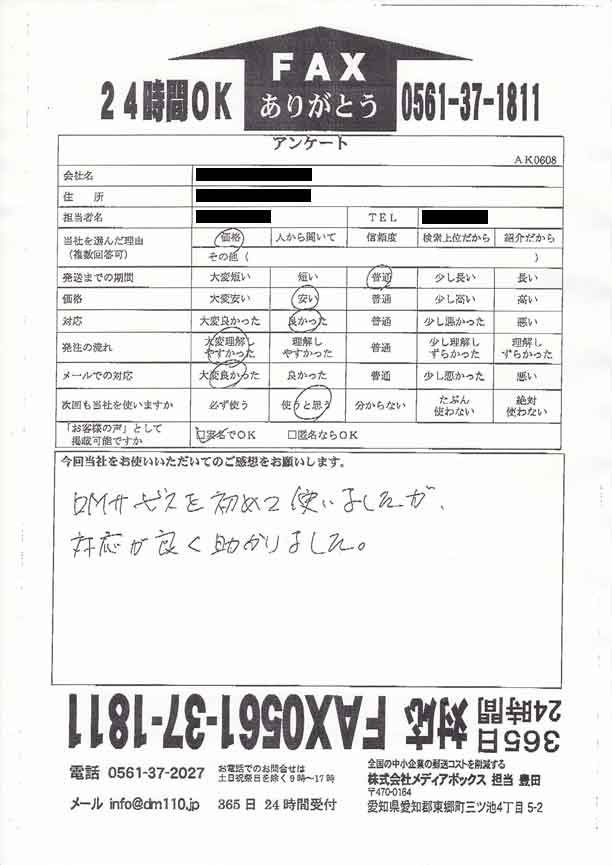 FAX
24時間OK ありがとう 0561-37-1811
アンケート
AK0608
会社名
住 所
担当者名 TEL
当社を選んだ理由 価格 人から聞いて 信頼度 検索上位だから 紹介だから
(複数回答可) その他( )
発送までの期間 大変短い 短い 普通 少し長い 長い
価格 大変安い 安い 普通 少し高い 高い
対応 大変良かった 良かった 普通 少し悪かった 悪い
発注の流れ 大変理解しやすかった 理解しやすかった 普通 少し理解しずらかった 理解しずらかった
メールでの対応 大変良かった 良かった 普通 少し悪かった 悪い
次回も当社を使いますか 必ず使う 使うと思う 分からない たぶん使わない 絶対使わない
「お客様の声」として
掲載可能ですか □実名でOK □匿名ならOK
今回当社をお使いいただいてのご感想をお願いします。
DMサービスを初めて使いましたが、
対応が良く助かりました。
365日
24時間 対応 FAX0561-37-1811
電話 0561-37-2027 お電話でのお問合せは
土日祝祭日を除く9時〜17時
メール info@dm110.jp 365日 24時間受付
全国の中小企業の郵送コストを削減する
株式会社メディアボックス 担当 豊田
〒470-0164
愛知県愛知郡東郷町三ツ池4丁目5-2